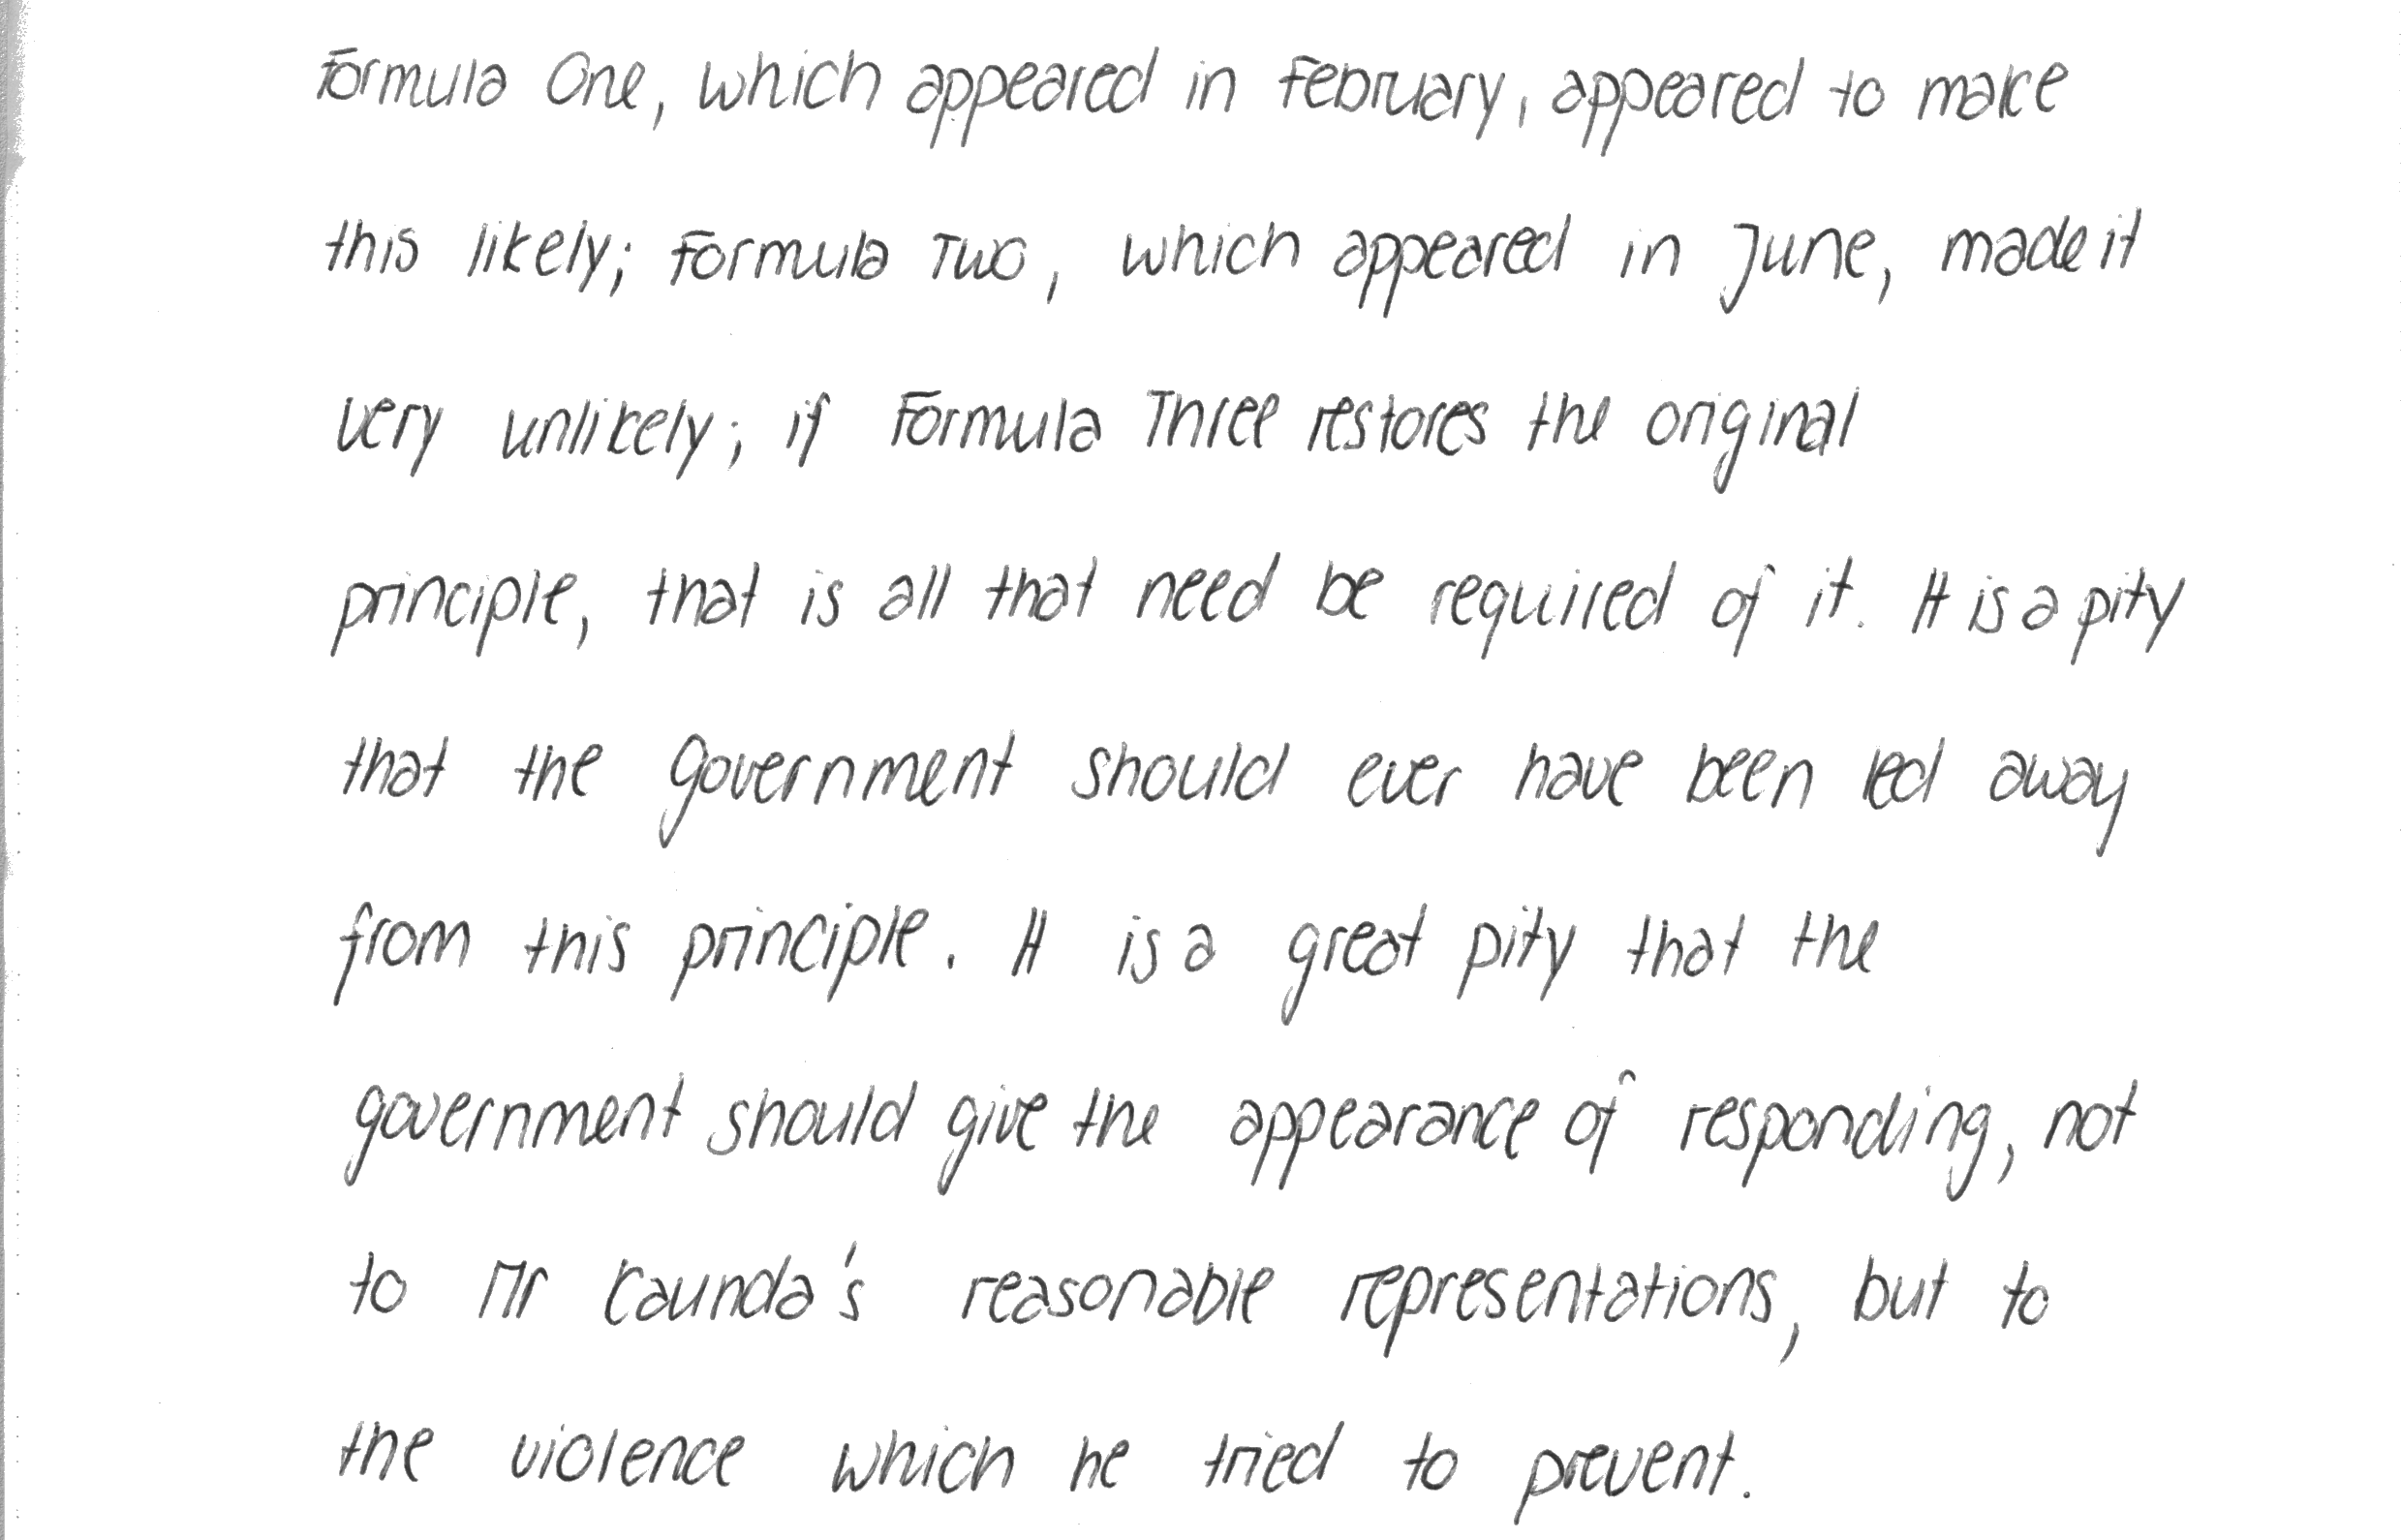 Formula One, which appeared in February, appeared to make
this likely; Formula Two, which appeared in June, made it
very unlikely; if Formula Three restores the original
principle, that is all that need be required of it. It is a pity
that the Government should ever have been led away
from this principle. It is a great pity that the
government should give the appearance of responding, not
to Mr Kaunda's reasonable representations, but to
the violence which he tried to prevent.